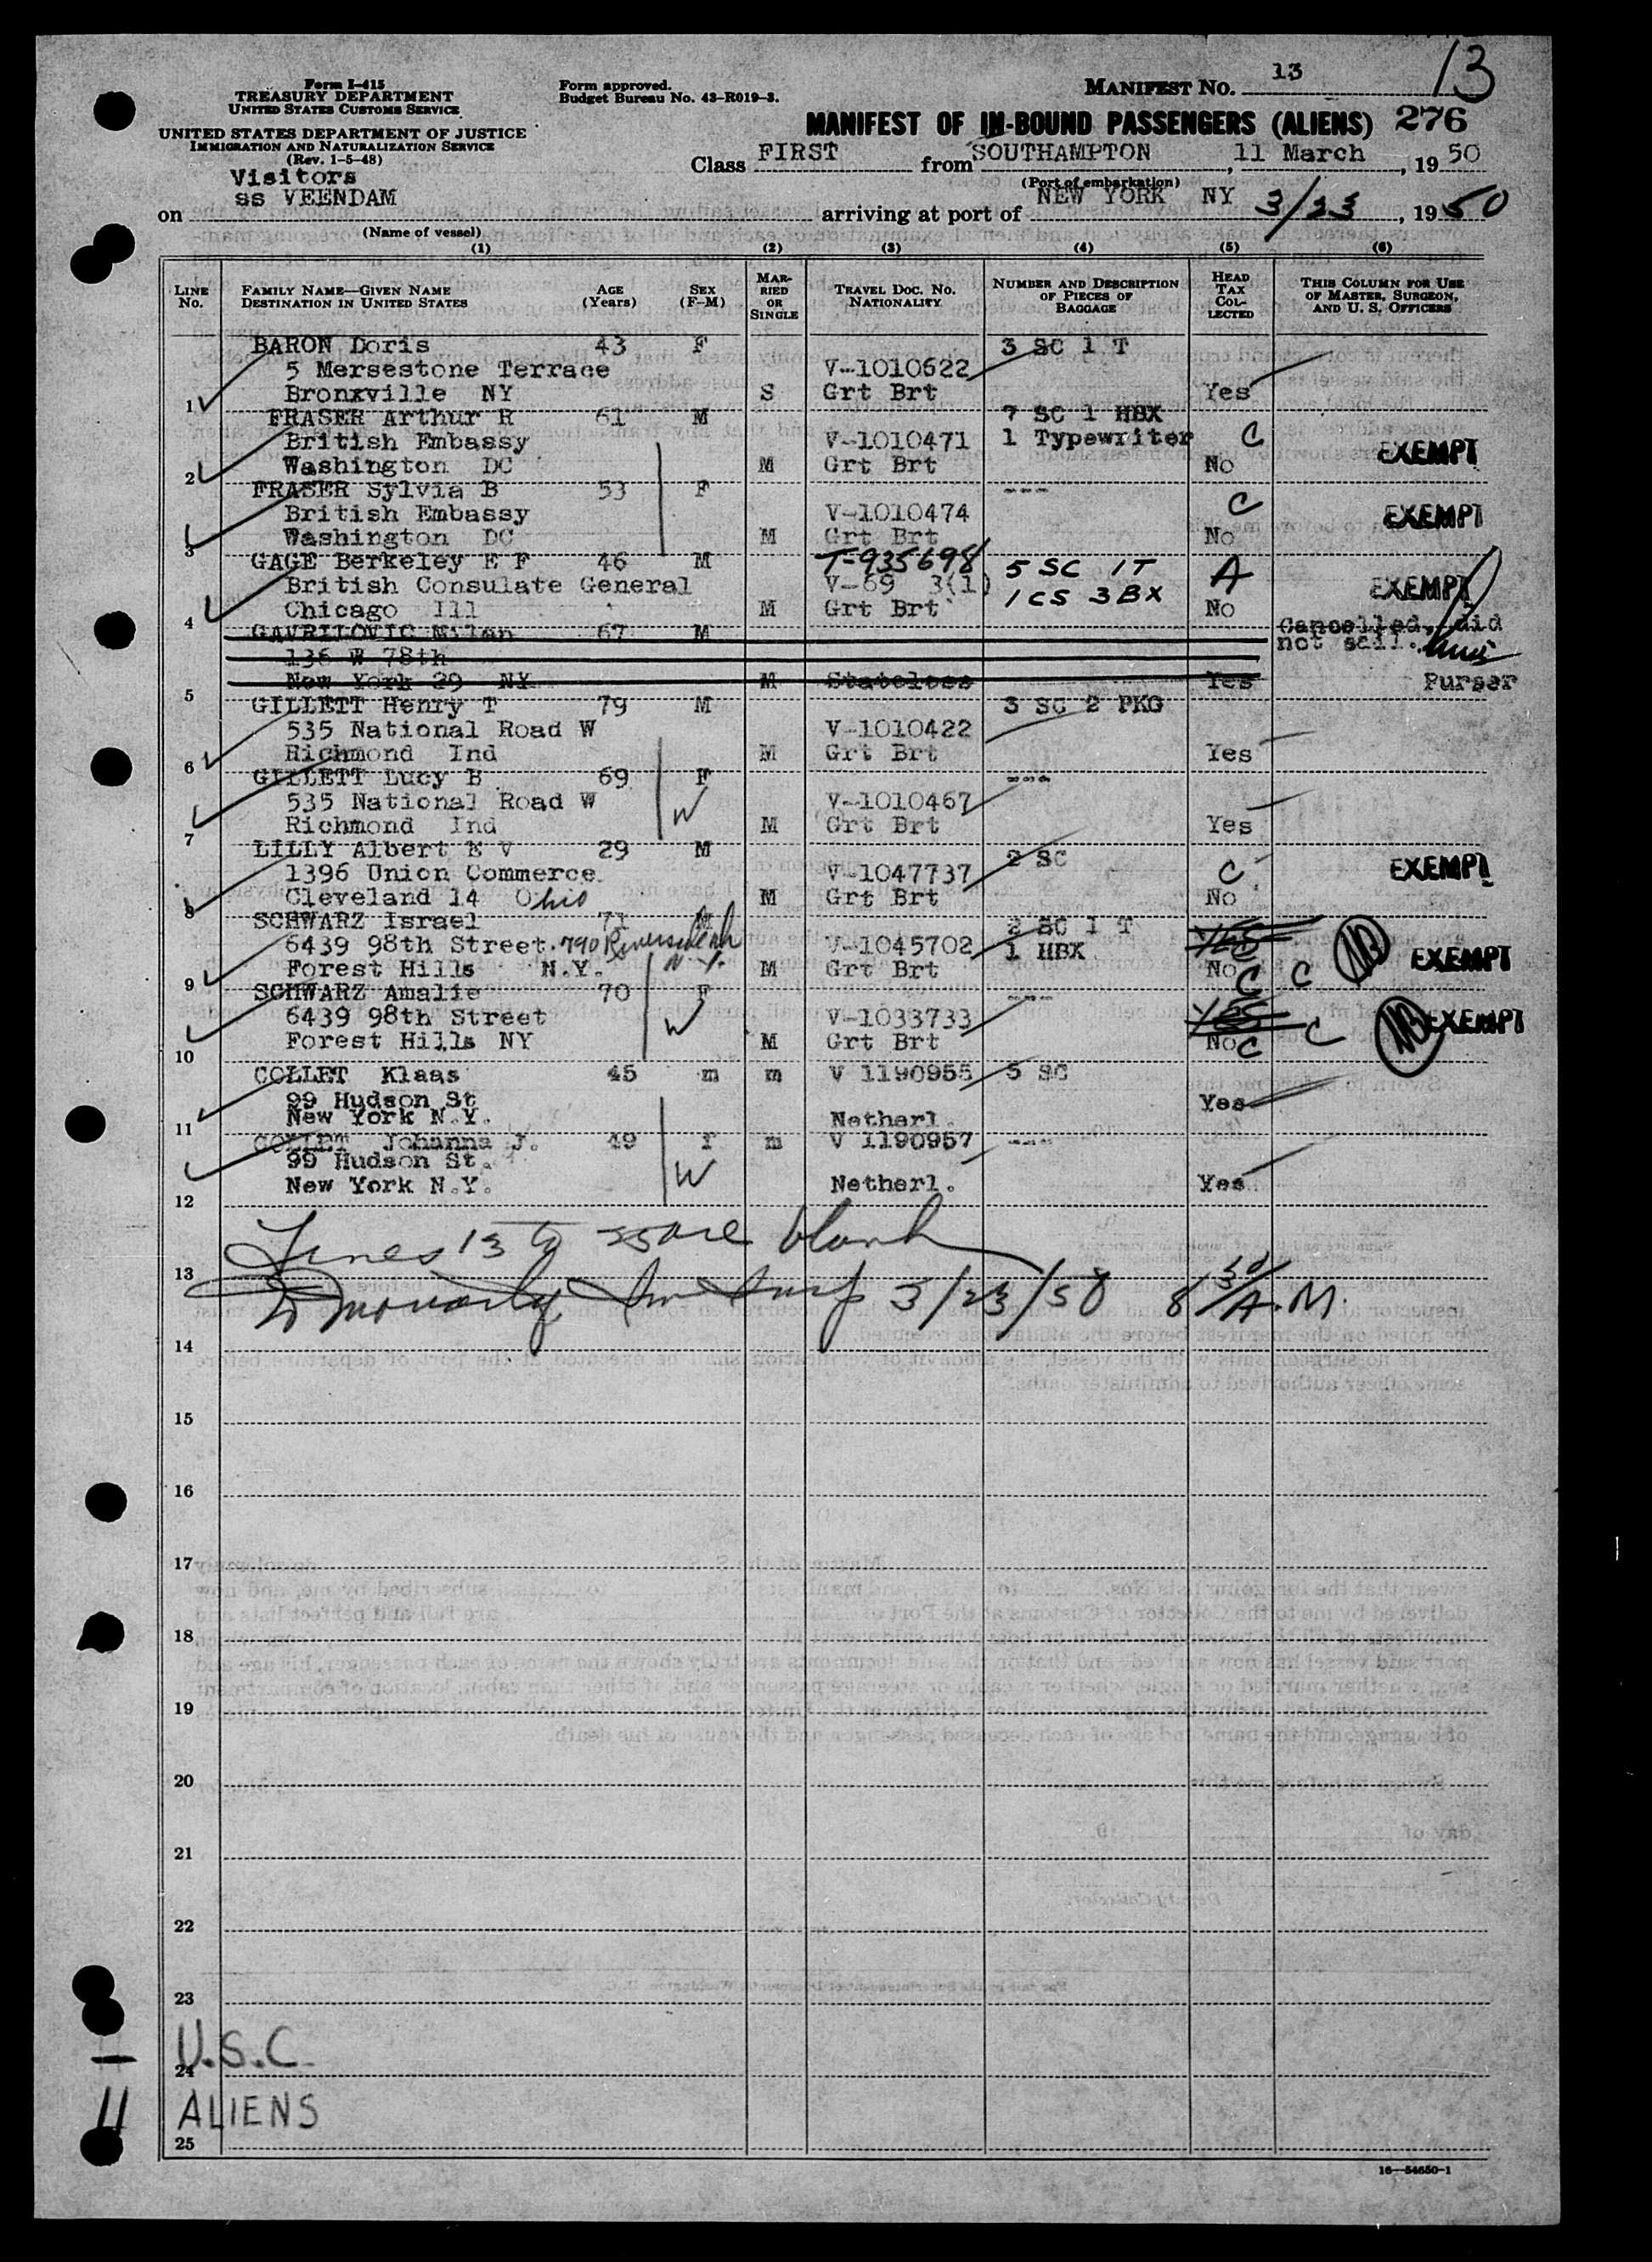 Form I-415
TREASURY DEPARTMENT
UNITED STATES CUSTOMS SERVICE
UNITED STATES DEPARTMENT OF JUSTICE
IMMIGRATION AND NATURALIZATION SERVICE
(Rev. 1-5-48)
Form approved.
Budget Bureau No. 43-R019-3.
MANIFEST No. 13
13
MANIFEST OF IN-BOUND PASSENGERS (ALIENS) 276
Class FIRST from SOUTHAMPTON, 11 March, 1950
(Port of embarkation)
Visitors
on ss VEENDAM arriving at port of NEW YORK NY 3/23, 1950
(Name of vessel)
(1) (2) (3) (4) (5) (6)
LINE No. FAMILY NAME—GIVEN NAME DESTINATION IN UNITED STATES AGE (Years) SEX (F-M) MARRIED OR SINGLE TRAVEL DOC. NO. NATIONALITY NUMBER AND DESCRIPTION OF PIECES OF BAGGAGE HEAD TAX COLLECTED THIS COLUMN FOR USE OF MASTER, SURGEON, AND U. S. OFFICERS
BARON Doris 43 F 3 SC 1 T
5 Mersestone Terrace V-1010622
1 Bronxville NY S Grt Brt Yes
FRASER Arthur R 61 M 7 SC 1 HBX
British Embassy V-1010471 1 Typewriter C EXEMPT
2 Washington DC M Grt Brt No
FRASER Sylvia B 53 F ---
British Embassy V-1010474 C EXEMPT
3 Washington DC M Grt Brt No
GAGE Berkeley E F 46 M T-935698 5 SC 1T A
British Consulate General V-69 3(1) 1 CS 3 BX EXEMPT
4 Chicago Ill M Grt Brt No
GAVRILOVIC Milan 67 M Cancelled, did
136 W 78th not sail.
5 New York 29 NY M Stateless Yes Purser
GILLETT Henry T 79 M 3 SC 2 PKG
535 National Road W V-1010422
6 Richmond Ind M Grt Brt Yes
GILLETT Lucy B 69 F ---
535 National Road W W V-1010467
7 Richmond Ind M Grt Brt Yes
LILLY Albert E V 29 M 2 SC
1396 Union Commerce V-1047737 C EXEMPT
8 Cleveland 14 Ohio M Grt Brt No
SCHWARZ Israel 71 M 2 SC 1 T
6439 98th Street. 790 Riverside V-1045702 1 HBX Yes
9 Forest Hills N.Y. N.Y. M Grt Brt No C C EXEMPT
SCHWARZ Amalie 70 F ---
6439 98th Street W V-1033733 Yes C EXEMPT
10 Forest Hills NY M Grt Brt No C
COLLET Klaas 45 m m V 1190955 5 SC
99 Hudson St Yes
11 New York N.Y. Netherl.
COLLET Johanna J. 49 f m V 1190957 ---
99 Hudson St. W
12 New York N.Y. Netherl. Yes
Lines 13 to 25 are blank
13
3/23/50 8 30/A.M.
14
15
16
17
18
19
20
21
22
23
— U.S.C.
24
11 ALIENS
25
16—54650-1